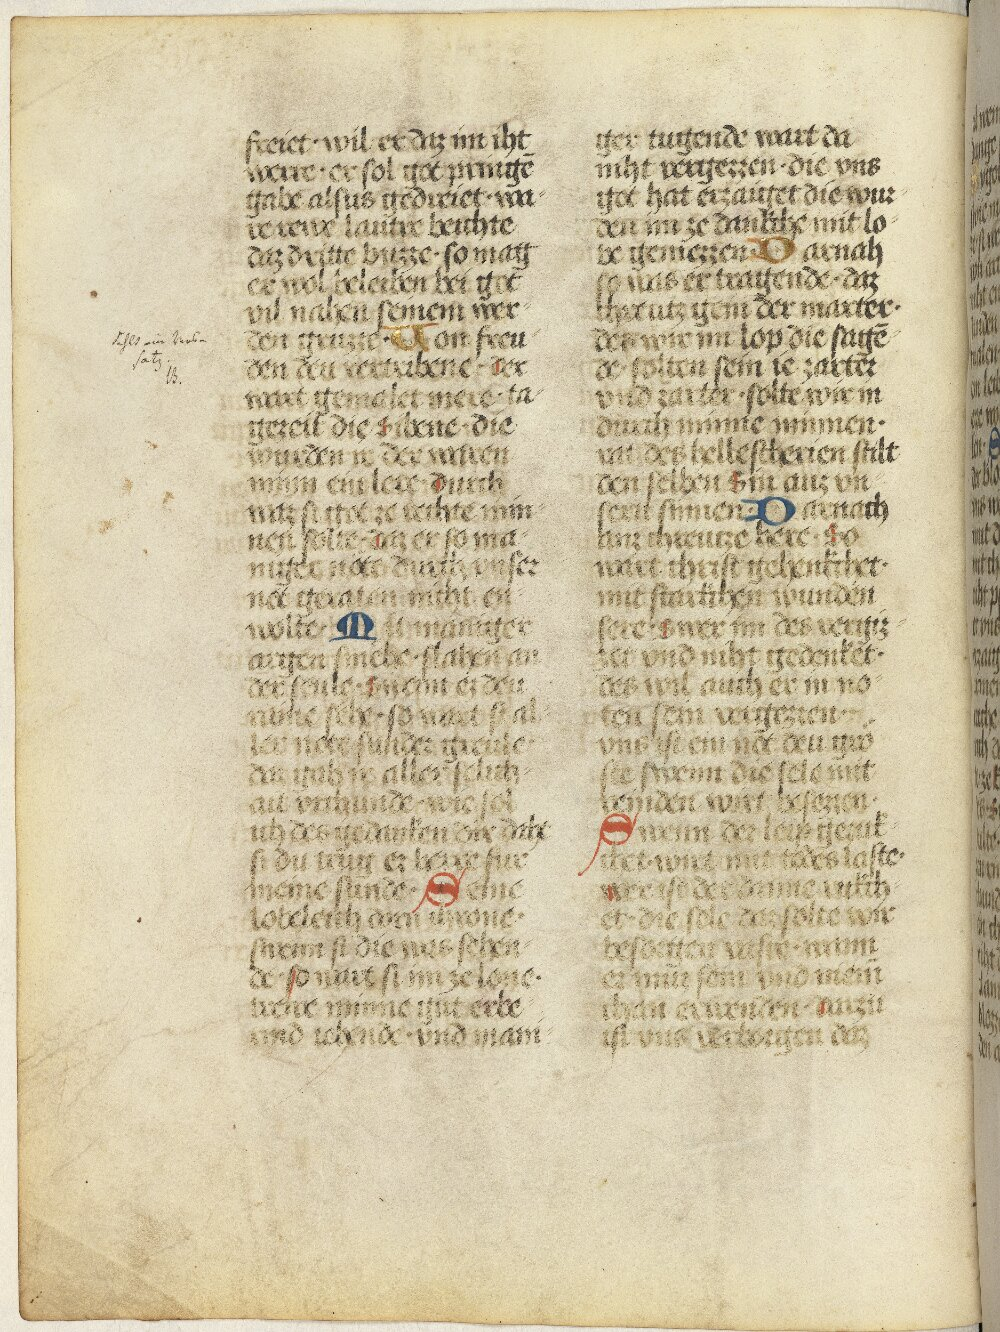 freiet · wil er daz im iht
werre · er sol got pringē
gabe alsus gedreiet · wa
re rewe lautre beichte
daz dritte buzze · so mag
er wol beleiben bei got
vil nahen seinem wer
den gruzze · Von freu
den deu vertribene · der
wart gemalet mere · ta
gereit die sibene · die
wurden ir der waren
minn ein lere · durch
waz si got ze rehte min
nen solte · daz er so ma
niger note durch vnser
not geraten nicht en
wolte · Mit maniger
argen smehe · slahen an
der seule · swenn ez deu
so wart si al
ler note sunder greule ·
daz gab ir aller
vrchunde · wie sol
ich des gedanken dir
si du trug ez herre fur
meine sunde · Seine
lobeleich dorn chrone ·
swenn si die was sehen
de · so wart si im ze lone ·
rehte minne gut erbe
vnd iehende · vnd mani
ger tugende wart da
niht vergezzen · die vns
got hat erzaiget die wur
den im ze dankche mit lo
be gemezzen · Darnah
so was er tragende · daz
chreutz gein der marter ·
des wir im lop die sagē
de · solten sein ie zarter
vnd zarter · solte wir in
durch minne minnen ·
vil des hellescherien stilt
den selben sin auz vn
sern sinnen · Darnach
anz chreutze here · So
wart christ gehenkchet ·
mit starkchen wunden
sere · swer im des vergiz
zet vnd niht gedenket ·
des wil auch er in no
ten sein vergezzen ·
vns ist ein not deu gro
ste swenn die sele mit
wirt besezzen ·
Swenn der leip gezuk
chet · wirt mit todes laste ·
wer ist der danne rukch
et · die sele dar solte wir
besorgen vaste · wann
er muz sein vnd mein
chan erwenden · anzü
ist vns verborgen daz